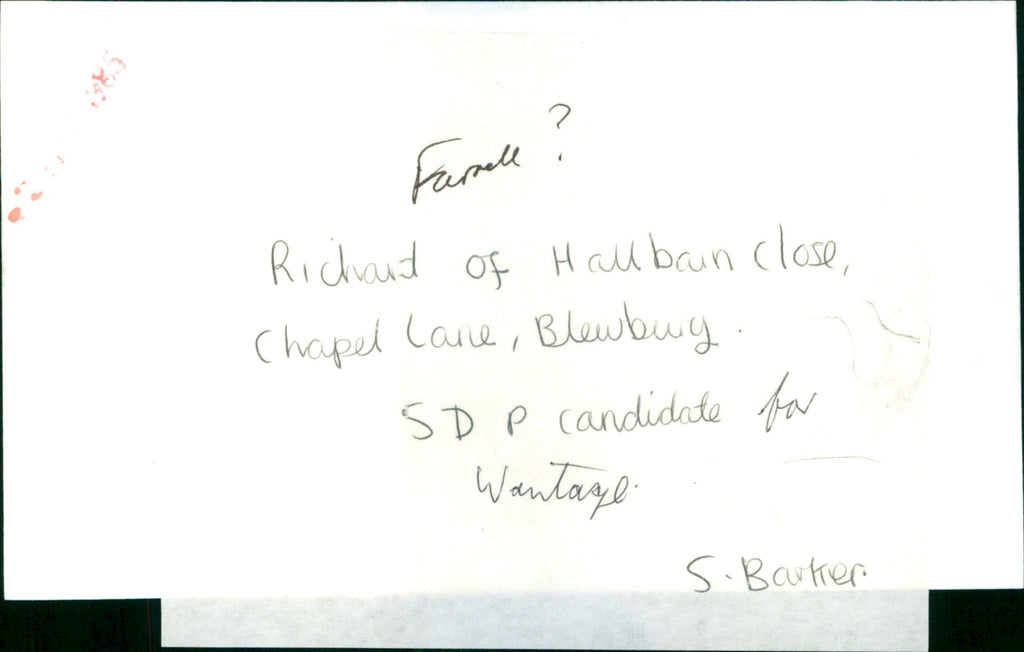 1985
Farnell ?
Richard of Hallbarn Close,
Chapel Lane, Blewbury.
SDP candidate for
Wantage.
S. Barker.